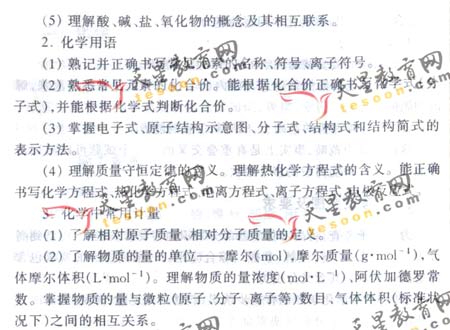 (5) 理解酸、碱、盐、氧化物的概念及其相互联系。
2. 化学用语
(1) 熟记并正确书写常见元素的名称、符号、离子符号。
(2) 熟悉常见元素的化合价。能根据化合价正确书写化学式(
子式),并能根据化学式判断化合价。
(3) 掌握电子式、原子结构示意图、分子式、结构式和结构简式的
表示方法。
(4) 理解质量守恒定律的含义。理解热化学方程式的含义。能正确
书写化学方程式、热化学方程式、电离方程式、离子方程式、电极反应式。
3. 化学中常用计量
(1) 了解相对原子质量、相对分子质量的定义。
(2) 了解物质的量的单位——摩尔(mol),摩尔质量(g·mol⁻¹),气
体摩尔体积(L·mol⁻¹)。理解物质的量浓度(mol·L⁻¹)、阿伏加德罗常
数。掌握物质的量与微粒(原子、分子、离子等)数目、气体体积(标准状
况下)之间的相互关系。
天星教育网
tesoon.com
天星教育网
tesoon.com
天星教育网
tesoon.com
天星教育网
tesoon.com